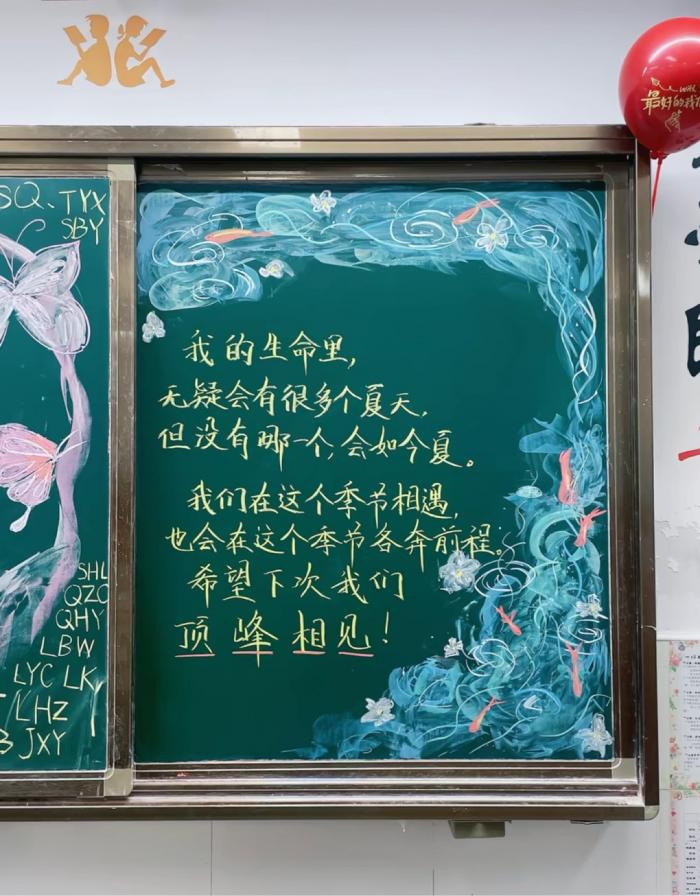 SQ、TYX
SBY
SHL
QZC
QHY
LBW
LYC LK
LHZ
JXY
我的生命里,
无疑会有很多个夏天,
但没有哪一个,会如今夏。
我们在这个季节相遇,
也会在这个季节各奔前程。
希望下次我们
顶峰相见!
最好的我们